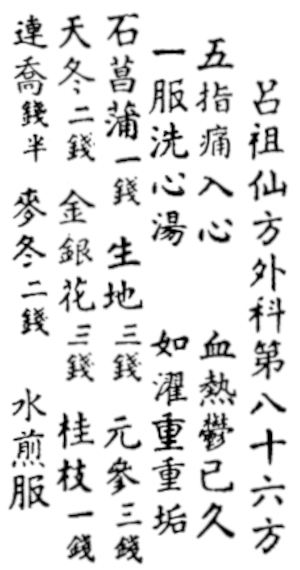 呂祖仙方外科第八十六方
五指痛入心 血熱鬱已久
一服洗心湯 如濯重重垢
石菖蒲一錢 生地三錢 元參三錢
天冬二錢 金銀花三錢 桂枝一錢
連喬錢半 麥冬二錢 水煎服